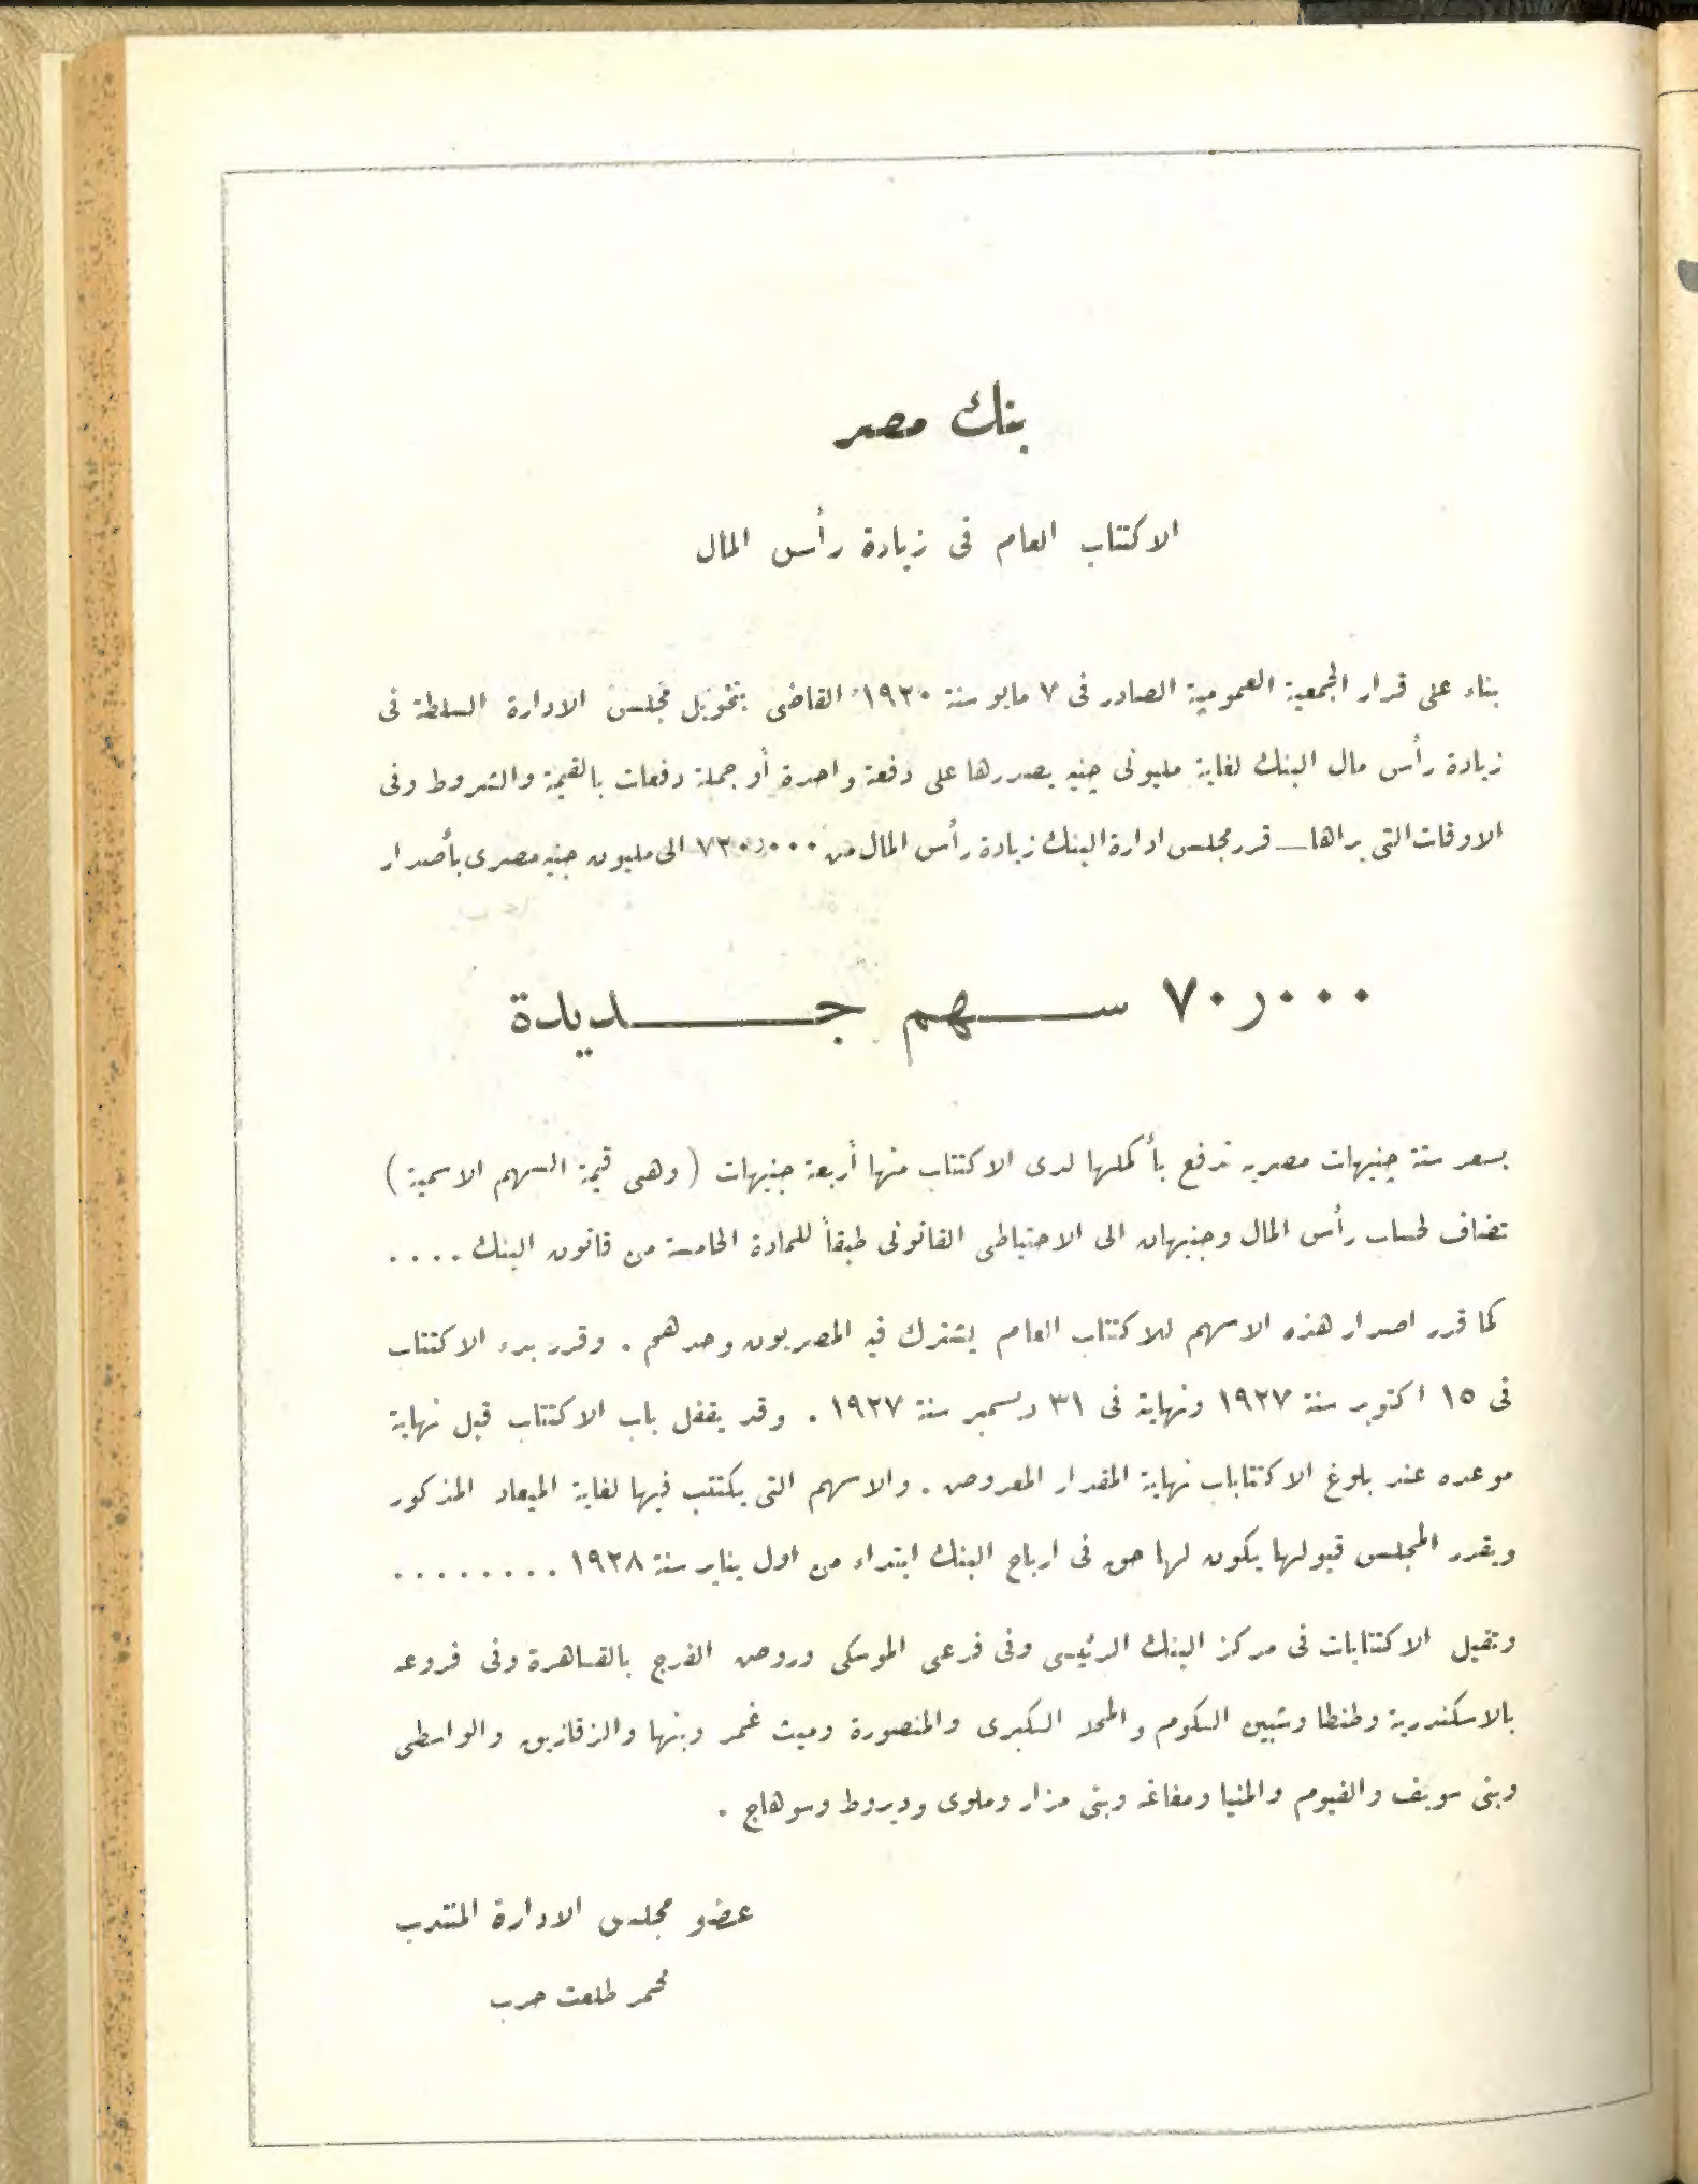 بنك مصر
الاكتتاب العام فى زيادة رأس المال
بناء على قرار الجمعية العمومية الصادر فى ٧ مايو سنة ١٩٢٠ القاضى بتخويل مجلس الادارة السلطة فى
زيادة رأس مال البنك لغاية مليونى جنيه يصدرها على دفعة واحدة أو جملة دفعات بالقيمة والشروط وفى
الاوقات التى يراها ــ قرر مجلس ادارة البنك زيادة رأس المال من ٧٢٠ر٠٠٠ الى مليون جنيه مصرى بأصدار
٧٠ر٠٠٠ ســـهم جـــــديدة
بسعر ستة جنيهات مصريه تدفع بأكملها لدى الاكتتاب منها أربعة جنيهات ( وهى قيمة السهم الاسمية )
تضاف لحساب رأس المال وجنيهان الى الاحتياطى القانونى طبقاً للمادة الخامسة من قانون البنك ....
كما قرر اصدار هذه الاسهم للاكتتاب العام يشترك فيه المصريون وحدهم . وقرر بدء الاكتتاب
فى ١٥ اكتوبر سنة ١٩٢٧ ونهاية فى ٣١ ديسمبر سنة ١٩٢٧ . وقد يقفل باب الاكتتاب قبل نهاية
موعده عند بلوغ الاكتتابات نهاية المقدار المعروض . والاسهم التى يكتتب فيها لغاية الميعاد المذكور
ويقرر المجلس قبولها يكون لها حق فى ارباح البنك ابتداء من اول يناير سنة ١٩٢٨ .........
وتقبل الاكتتابات فى مركز البنك الرئيسى وفى فرعى الموسكى وروض الفرج بالقاهرة وفى فروعه
بالاسكندرية وطنطا وشبين الكوم والمحله الكبرى والمنصورة وميت غمر وبنها والزقازيق والواسطى
وبنى سويف والفيوم والمنيا ومغاغه وبنى مزار وملوى وديروط وسوهاج .
عضو مجلس الادارة المنتدب
محمد طلعت حرب